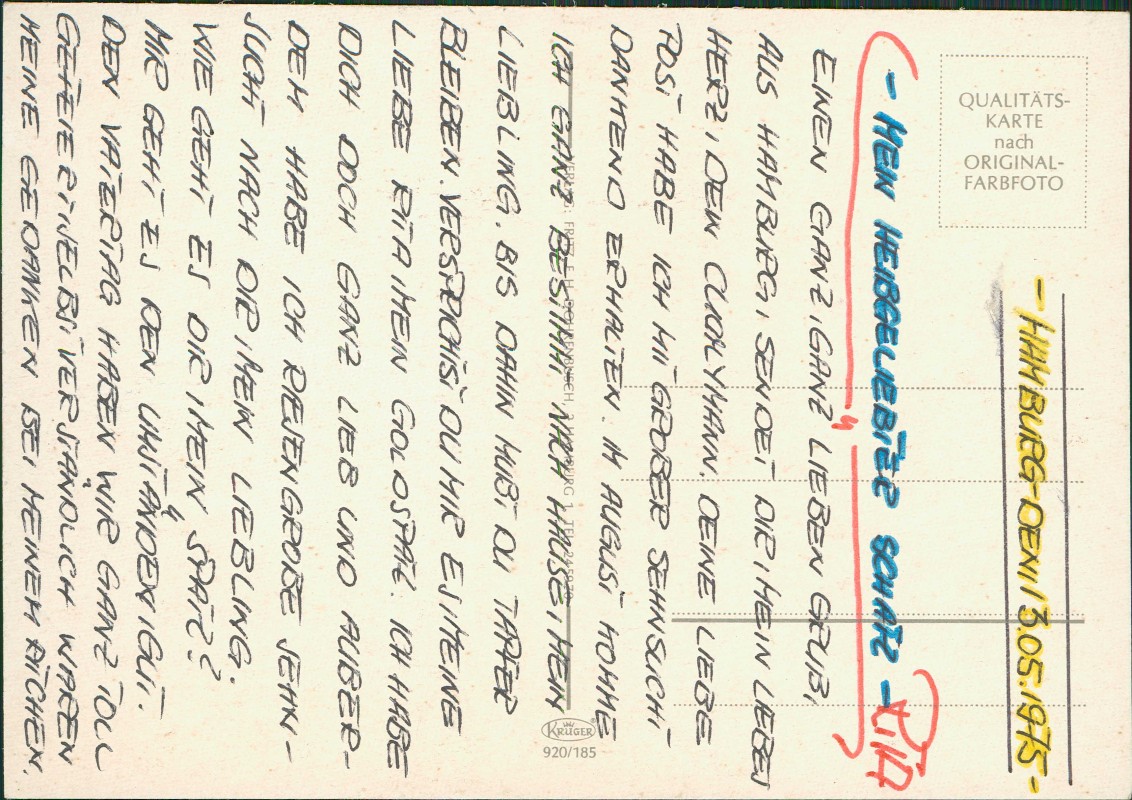 -HAMBURG-DEN 13.05.1975-
- MEIN HEIßGELIEBTER SCHATZ - RITA
EINEN GANZ, GANZ LIEBEN GRUß,
AUS HAMBURG, SENDET DIR, MEIN LIEBES
HERZ, DEIN MANN. DEINE LIEBE
POST HABE ICH MIT GROßER SEHNSUCHT
DANKEND ERHALTEN. IM AUGUST KOMME
ICH GANZ BESTIMMT NACH HAUSE, MEIN
LIEBLING. BIS DAHIN MUßT DU TAPFER
BLEIBEN. VERSPRICHST DU MIR ES, MEINE
LIEBE RITA, MEIN GOLDSPATZ. ICH HABE
DICH DOCH GANZ LIEB UND AUßER-
DEM HABE ICH RIESENGROßE SEHN-
SUCHT NACH DIR, MEIN LIEBLING.
WIE GEHT ES DIR, MEIN SPATZ?
MIR GEHT ES DEN UMSTÄNDEN, GUT.
DEN VATERTAG HABEN WIR GANZ TOLL
GEFEIERT, SELBSTVERSTÄNDLICH WAREN
MEINE GEDANKEN BEI MEINEM RITCHEN.
QUALITÄTS-
KARTE
nach
ORIGINAL-
FARBFOTO
KRÜGER
920/185